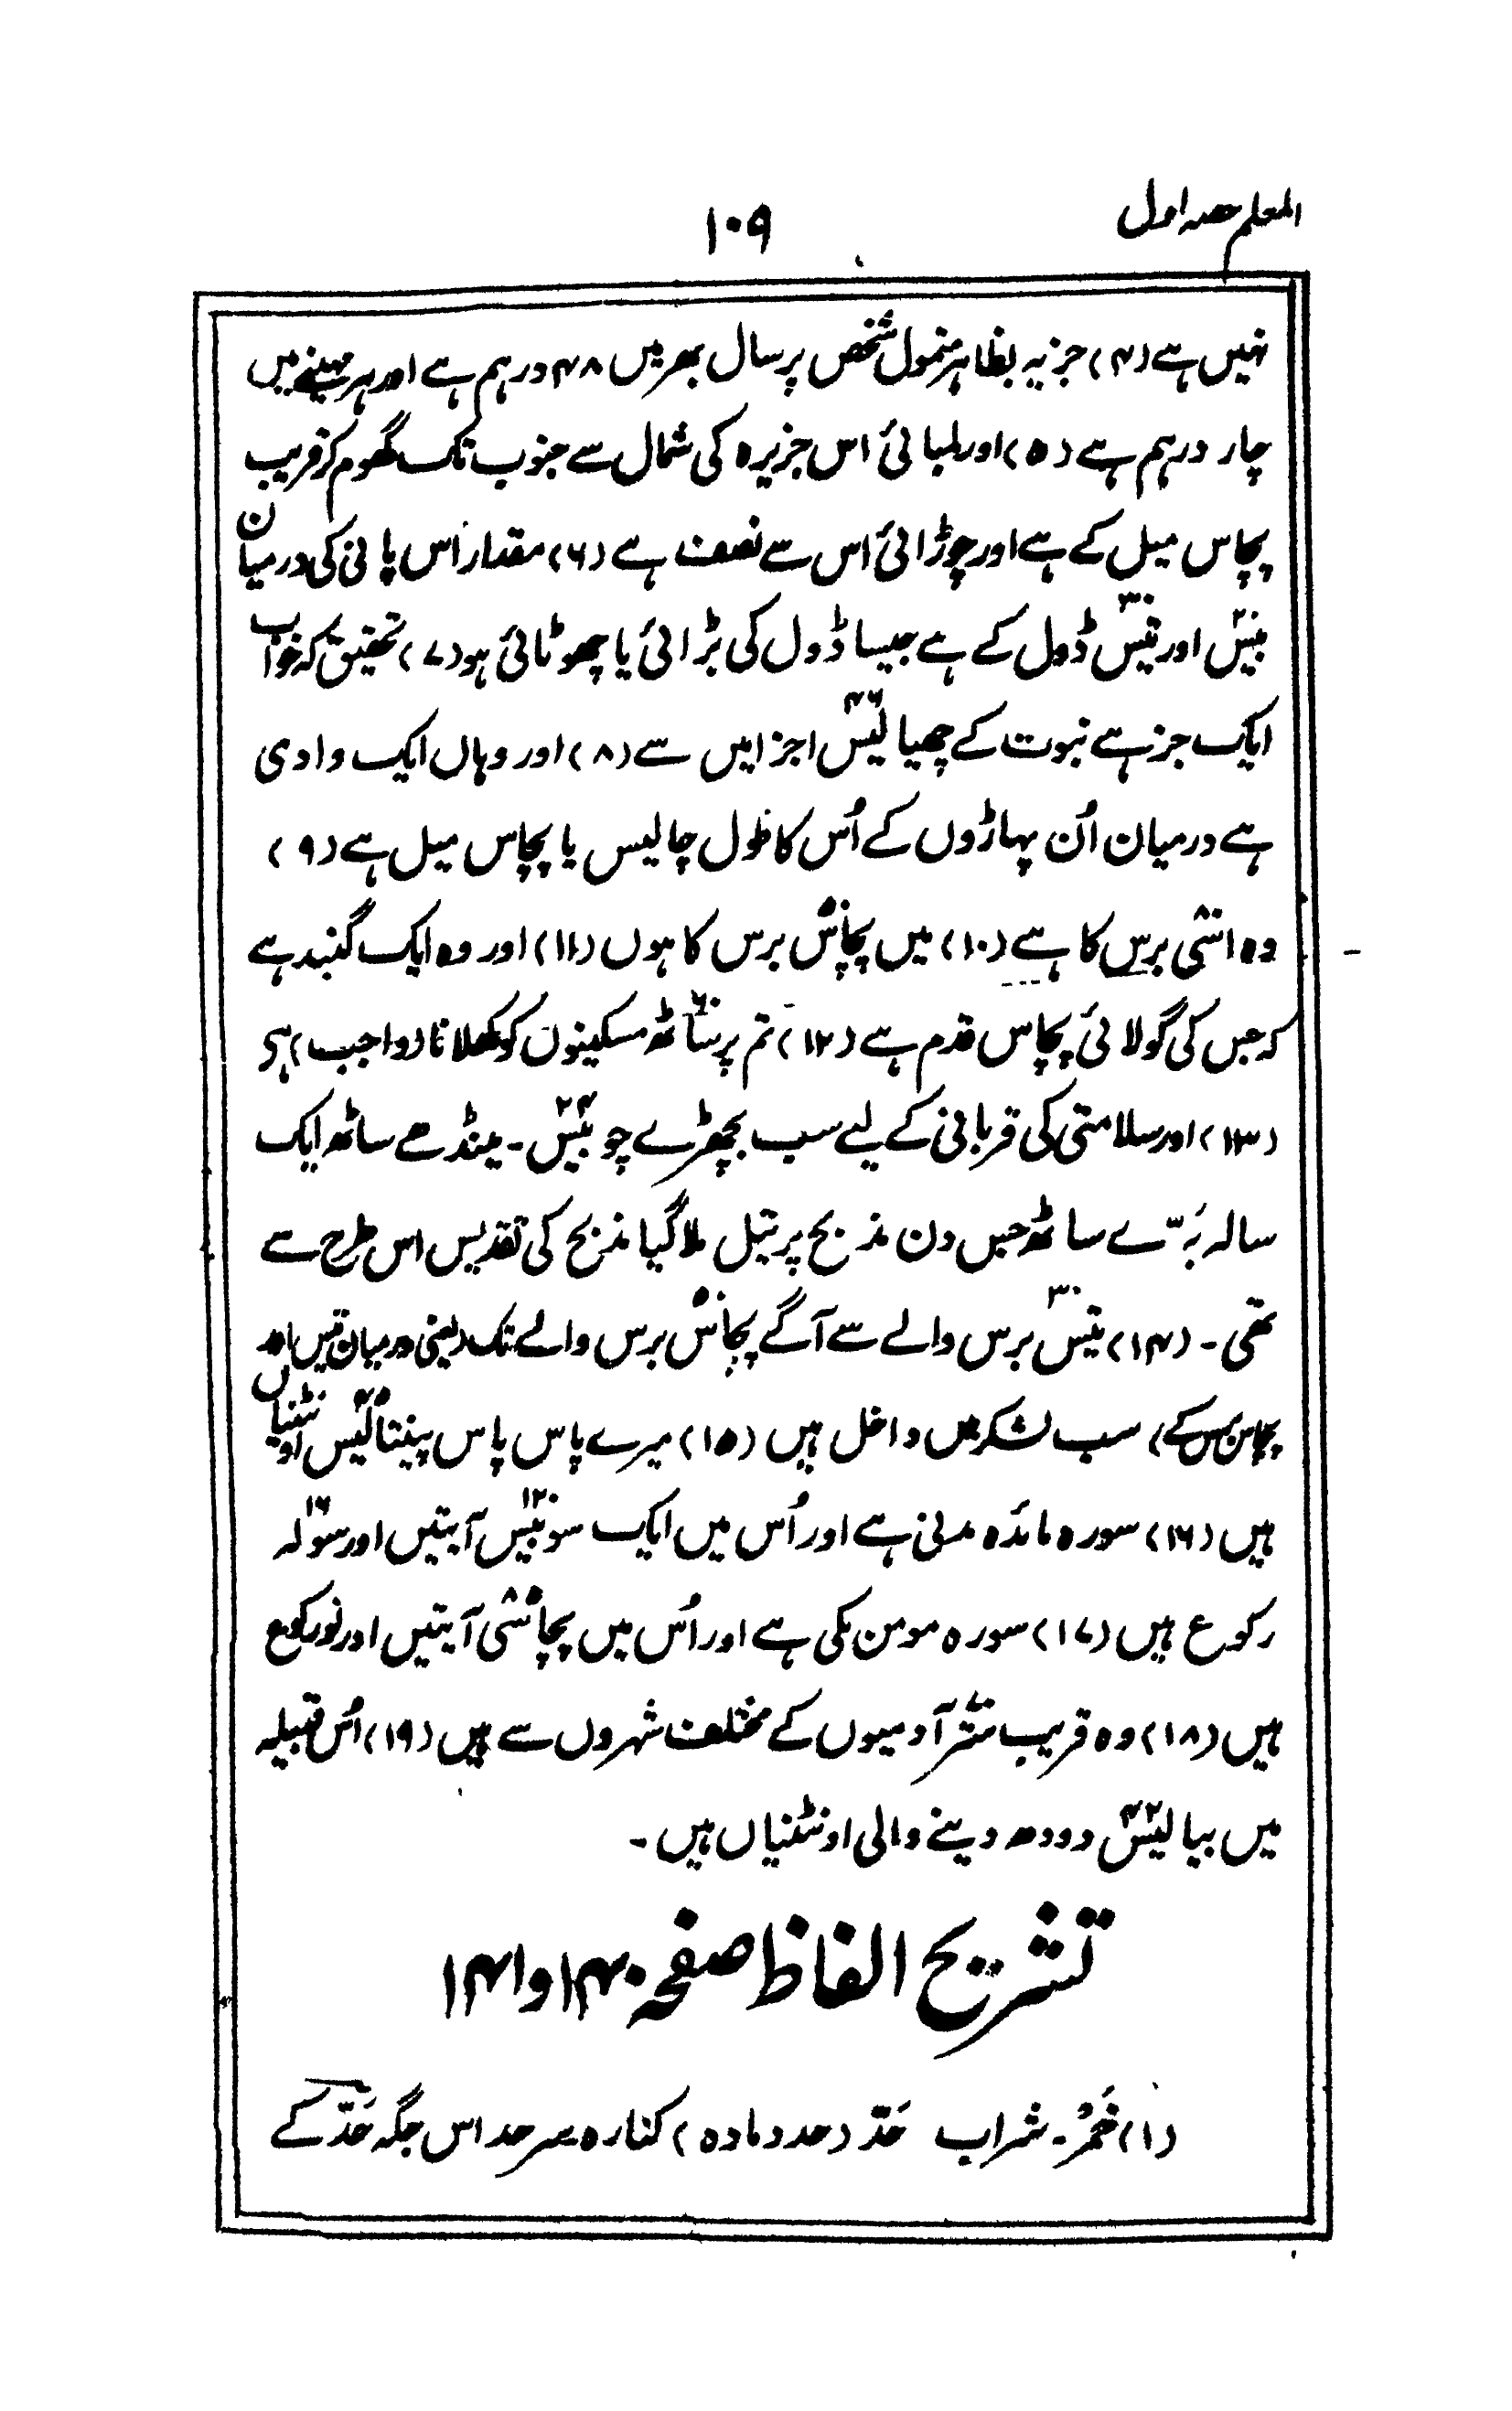 المعلم حصہ اول
۱۰۹
نہیں ہے (۴) جزیہ بظاہر متمول شخص پر سال بھر میں ۴۸ درہم ہے اور ہر مہینے میں
چار درہم ہے (۵) اور لمبائی اس جزیرہ کی شمال سے جنوب تک گھوم کر قریب
پچاس میل کے ہے اور چوڑائی اس سے نصف ہے (۶) مقدار اس پانی کی درمیان
بیس۲۰ اور تیس۳۰ ڈول کے ہے جیسا ڈول کی بڑائی یا چھوٹائی ہو (۷) تحقیق کہ خواب
ایک جز ہے نبوت کے چھیالیس۴۶ اجزا میں سے (۸) اور وہاں ایک وادی
ہے درمیان اُن پہاڑوں کے اُس کا طول چالیس یا پچاس میل ہے (۹)
وہ اسّی۸۰ برس کا ہے (۱۰) میں پچاس۵۰ برس کا ہوں (۱۱) اور وہ ایک گنبد ہے
کہ جس کی گولائی پچاس قدم ہے (۱۲) تم پر ساٹھ۶۰ مسکینوں کو کھلانا (واجب) ہی
(۱۳) اور سلامتی کی قربانی کے لیے سب بچھڑے چوبیس۲۴ ۔ مینڈھے ساٹھ ایک
سالہ بَرّے ساٹھ جس دن مذبح پر تیل ملا گیا مذبح کی تقدیس اس طرح سے
تھی ۔ (۱۴) تیس۳۰ برس والے سے آگے پچاس۵۰ برس والے تک (یعنی درمیان تیس اور
پچاس برس کے) سب لشکر میں داخل ہیں (۱۵) میرے پاس پاس پینتالیس۴۵ اونٹنیاں
ہیں (۱۶) سورہ مائدہ مدنی ہے اور اُس میں ایک سو بیس۱۲۰ آیتیں اور سولہ۱۶
رکوع ہیں (۱۷) سورہ مومن مکی ہے اور اُس میں پچاسی۸۵ آیتیں اور نو رکوع
ہیں (۱۸) وہ قریب ستر۷۰ آدمیوں کے مختلف شہروں سے ہیں (۱۹) اُس قبیلہ
میں بیالیس۴۲ دودھ دینے والی اونٹنیاں ہیں ۔
تشریح الفاظ صفحہ ۱۴۰ و ۱۴۱
(۱) خَمْرٌ ۔ شراب حَدّ (حدد مادہ) کنارہ سرحد اس جگہ حَدّ کے